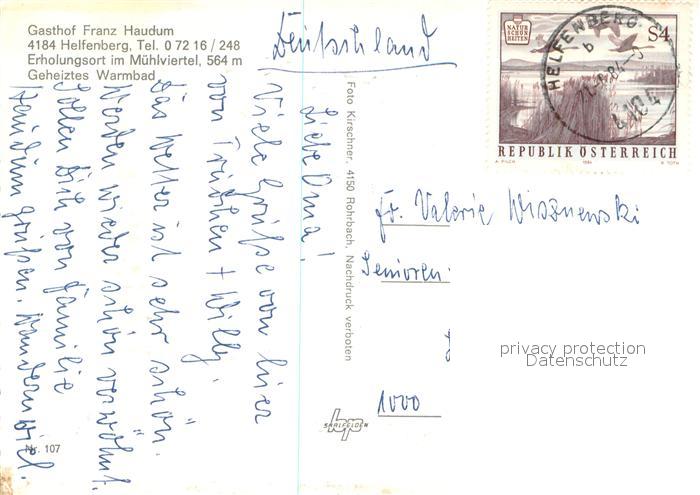 Gasthof Franz Haudum
4184 Helfenberg, Tel. 0 72 16 / 248
Erholungsort im Mühlviertel, 564 m
Geheiztes Warmbad
Deutschland
NATUR
SCHÖN
HEITEN
S4
HELFENBERG
b
4184
REPUBLIK ÖSTERREICH
A. PILCH
1984
Liebe Oma!
Viele Grüße von hier
von Trudchen + Willy.
Das Wetter ist sehr schön.
Werden wieder schön verwöhnt.
Sollen Dich von Familie
Haudum grüßen. Wandern viel.
Foto Kirschner, 4150 Rohrbach, Nachdruck verboten
Fr. Valerie Wisznewski
Senioren
1000
privacy protection
Datenschutz
SAALFELDEN
Nr. 107